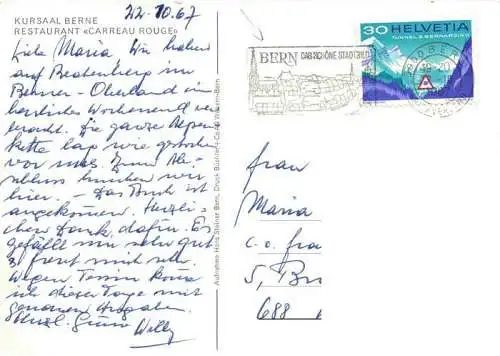 22.10.67
KURSAAL BERNE
RESTAURANT «CARREAU ROUGE»
Liebe Maria Wir haben
auf Beatenberg im
Berner-Oberland ein
herrliches Wochenend ver
bracht. Die ganze Alpen
kette lag wie gestochen
vor uns. Zum Ab-
schluss tauchen wir
hier. – Das Buch ist
angekommen. Herzli-
chen Dank dafür. Es
gefällt mir sehr gut
& freut mich sehr.
Wegen Tessin komme
ich dieser Tage mit
genauen Angaben.
Herzl. Grüsse Willy
Aufnahme Hans Steiner Bern, Druck Büchler+Co AG Wabern-Bern
BERN DAS SCHÖNE STADTBILD
30 HELVETIA
TUNNEL S. BERNARDINO
Frau
Maria
c.o. Fra
5, Bru
688